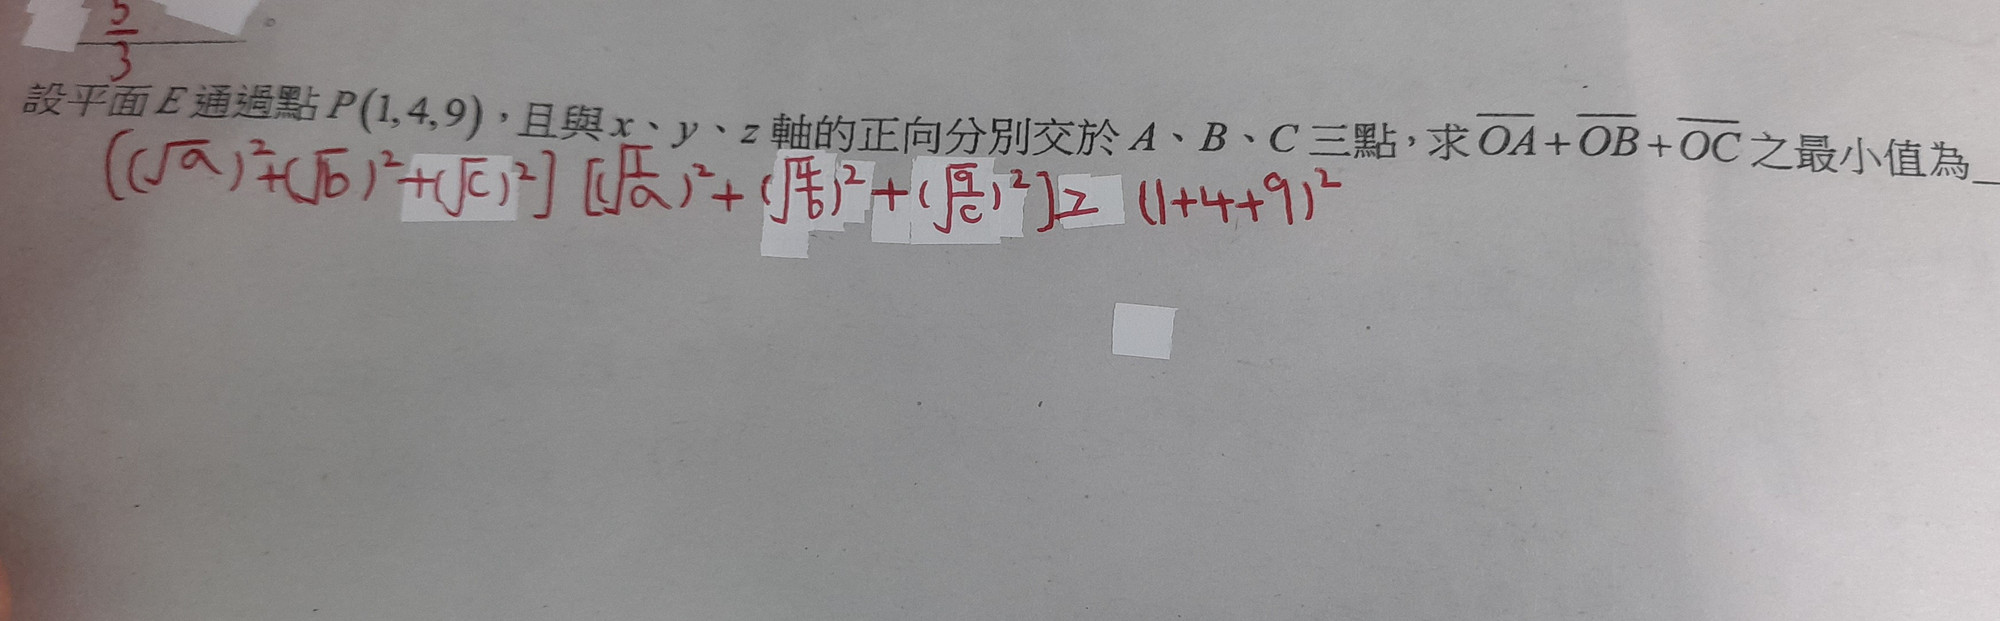 5
3
。
設平面 E 通過點 P(1,4,9)，且與 x、y、z 軸的正向分別交於 A、B、C 三點，求 \overline{OA}+\overline{OB}+\overline{OC} 之最小值為
[(√a)²+(√b)²+(√c)²] [(√(1/a))²+(√(4/b))²+(√(9/c))²]≥ (1+4+9)²